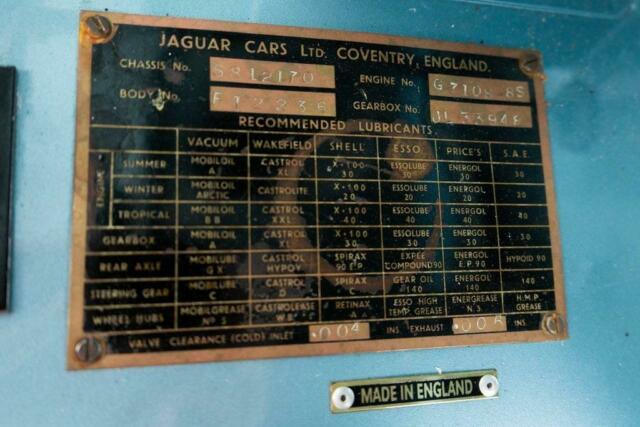 JAGUAR CARS LTD. COVENTRY, ENGLAND.
CHASSIS No. S812170 ENGINE No. G7108-8S
BODY No. F12236 GEARBOX No. JL33948
RECOMMENDED LUBRICANTS
VACUUM WAKEFIELD SHELL ESSO PRICE'S S.A.E.
ENGINE
SUMMER MOBILOIL A CASTROL XL X-100 30 ESSOLUBE 30 ENERGOL 30 30
WINTER MOBILOIL ARCTIC CASTROLITE X-100 20 ESSOLUBE 20 ENERGOL 20 20
TROPICAL MOBILOIL BB CASTROL XXL X-100 40 ESSOLUBE 40 ENERGOL 40 40
GEARBOX MOBILOIL A CASTROL XL X-100 30 ESSOLUBE 30 ENERGOL 30 30
REAR AXLE MOBILUBE GX CASTROL HYPOY SPIRAX 90 E.P. EXPEE COMPOUND 90 ENERGOL E.P. 90 HYPOID 90
STEERING GEAR MOBILUBE C CASTROL D SPIRAX C GEAR OIL 140 ENERGOL 140 140
WHEEL HUBS MOBILGREASE No 5 CASTROLEASE W.B. RETINAX A ESSO HIGH TEMP. GREASE ENERGREASE N.3 H.M.P. GREASE
VALVE CLEARANCE (COLD) INLET .004 INS. EXHAUST .006 INS.
MADE IN ENGLAND